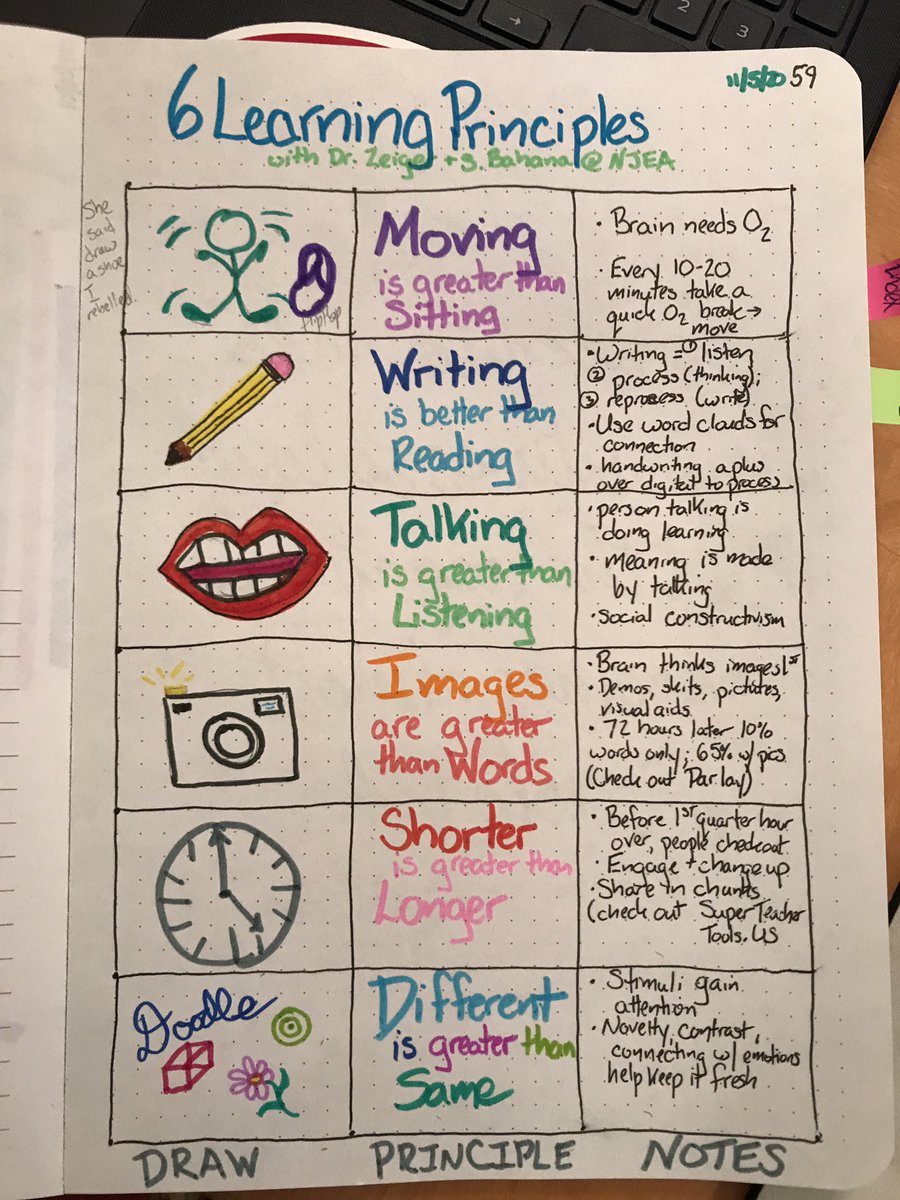 11/5/20 59
6 Learning Principles
with Dr. Zeiger + S. Bahana @ NJEA
She
said
draw
a shoe
I
rebelled.
flipflop
Moving
is greater than
Sitting
• Brain needs O2
• Every 10-20
minutes take a
quick O2 break →
move
Writing
is better than
Reading
• Writing = ① listen
② process (thinking);
③ reprosess (write)
• Use word clouds for
connection
• handwriting a plus
over digital to process
Talking
is greater than
Listening
• person talking is
doing learning
• Meaning is made
by talking
• Social constructivism
Images
are greater
than Words
• Brain thinks images 1st
• Demos, skits, pictures,
visual aids
• 72 hours later 10%
words only; 65% w/ pics
(Check out Parlay)
Shorter
is greater than
Longer
• Before 1st quarter hour
over, people checkout
• Engage + change up
• Share in chunks
(check out Super Teacher
Tools.US
Doodle
Different
is greater than
Same
• Stimuli gain
attention
• Novelty, contrast,
connecting w/ emotions
help keep it fresh
DRAW PRINCIPLE NOTES